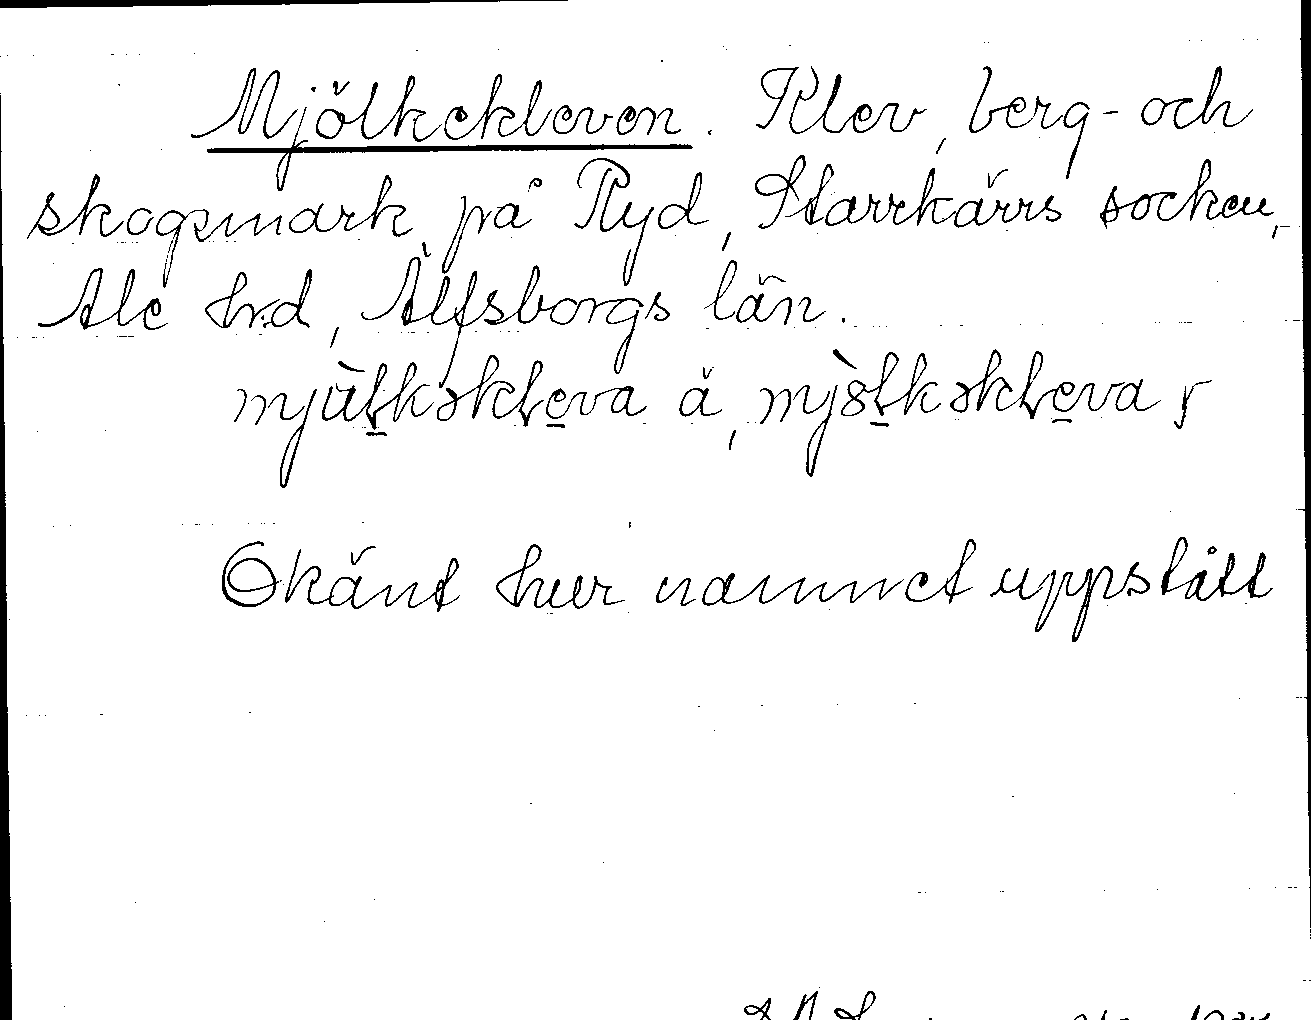 Mjölkekleven. Klev, berg- och
skogsmark på Ryd, Starrkärrs socken,
Ale hrd, Älfsborgs län.
mjùl̠kəkle̠va å, mjòl̠kəkle̠va
Okänt hur namnet uppstått